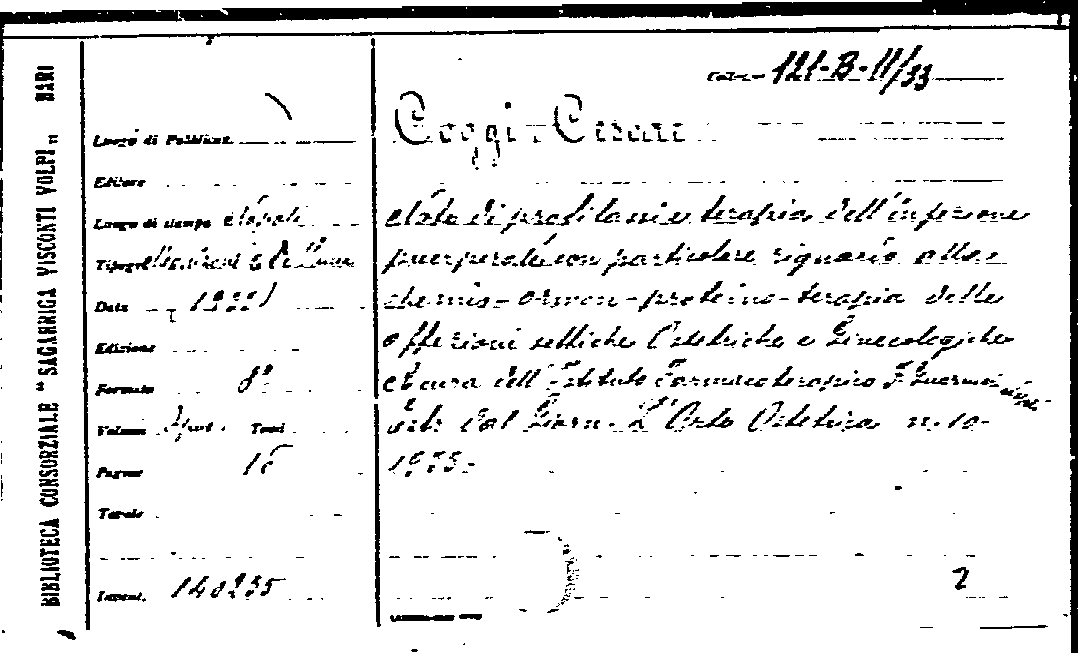 BIBLIOTECA CONSORZIALE "SAGARRIGA VISCONTI VOLPI" BARI
Colloc. 121-B-II/33
Luogo di Pubblicaz.
Editore
Luogo di stampa Napoli
Tipogr.
Data
Edizione
Formato 8º
Volume Tomi
Pagine 16
Tavole
Invent. 140235
Coggi Cesare
Note di profilassi e terapia dell'infezione
puerperale con particolare riguardo alla
chemio-ormon-proteino-terapia delle
affezioni settiche Ostetriche e Ginecologiche
A cura dell'Istituto Farmacoterapico
Estr. dal Giorn. L'Arte Ostetrica n. 10-
2